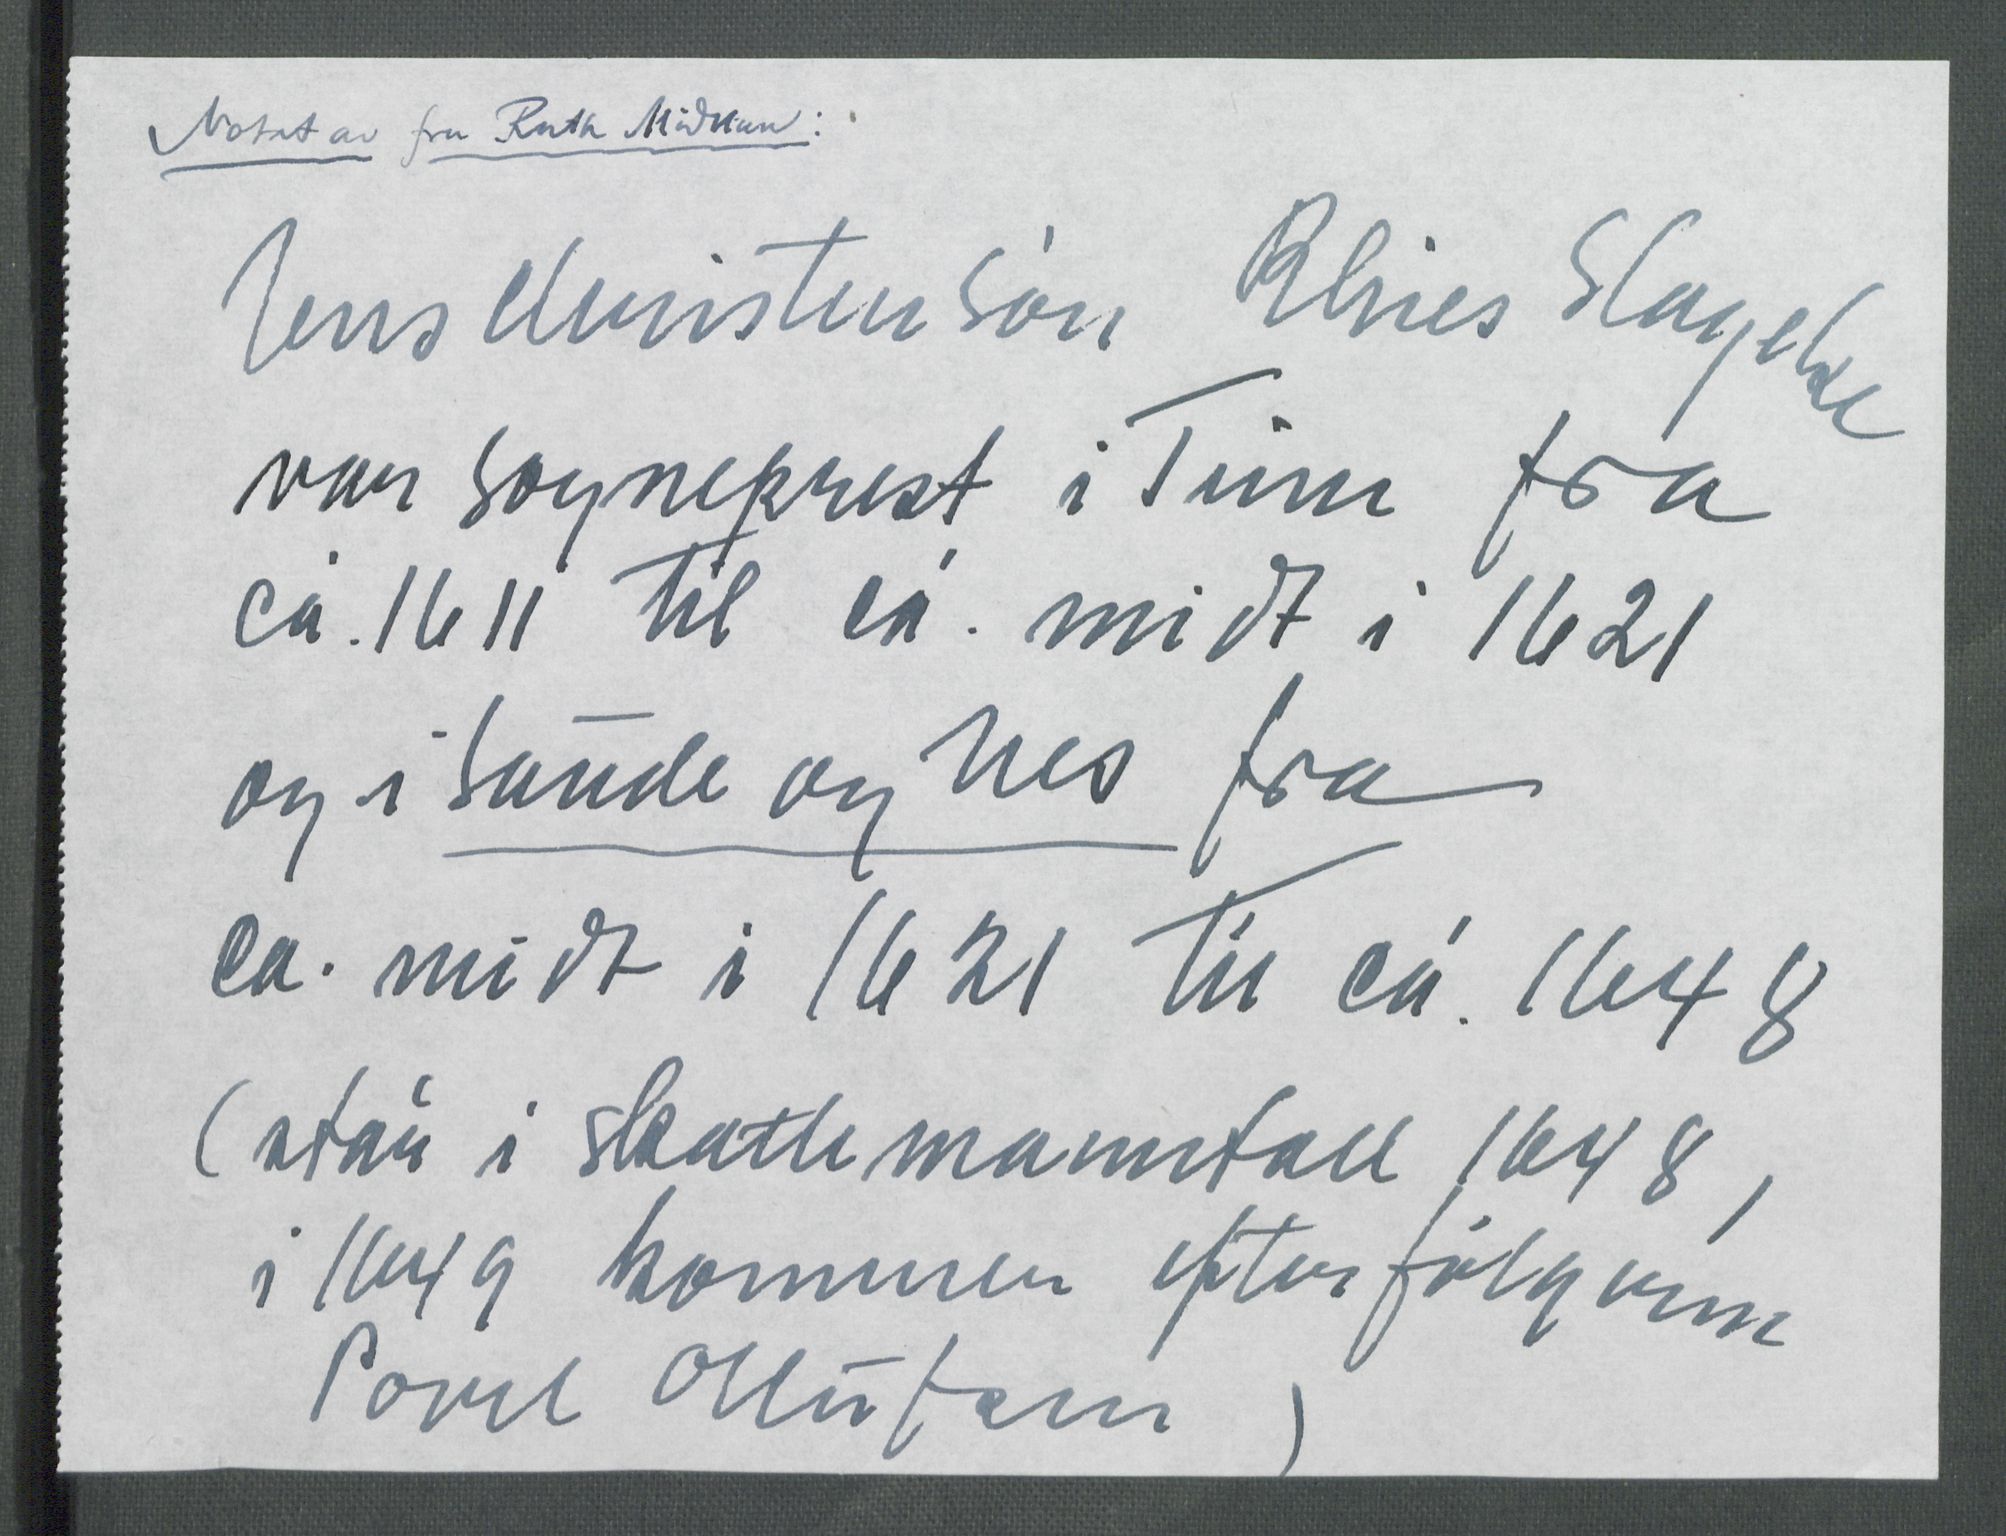 Notat av fru Ruth Midttun:
Jens Christensön Rhies Slagelse
var sogneprest i Tinn fra
ca. 1611 til ca. midt i 1621
og i Saude og Nes fra
ca. midt i 1621 til ca. 1648
(står i skattemanntall 1648,
i 1649 kommer efterfölgeren
Povel Ollufsen)